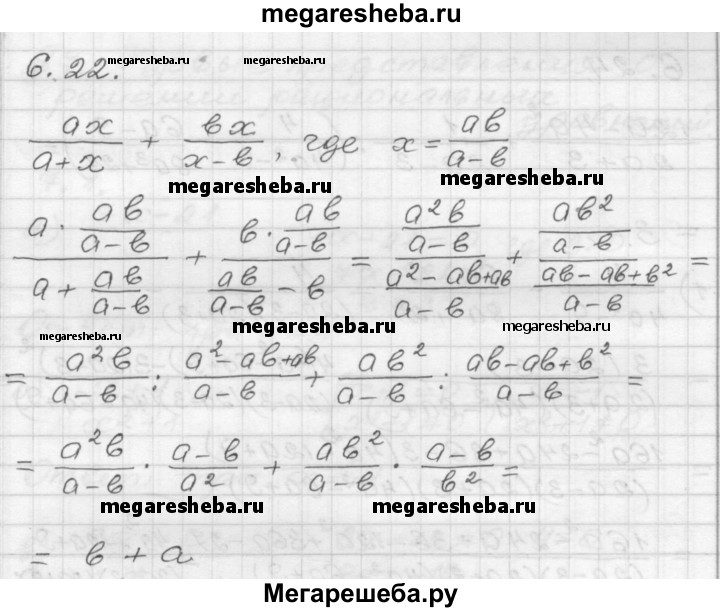 megaresheba.ru
6.22. megaresheba.ru megaresheba.ru
ax/(a+x) + вx/(x-в), где x = aв/(a-в)
megaresheba.ru megaresheba.ru
(a · aв/(a-в))/(a + aв/(a-в)) + (в · aв/(a-в))/(aв/(a-в) - в) = (a²в/(a-в))/((a²-aв+aв)/(a-в)) + (aв²/(a-в))/((aв-aв+в²)/(a-в)) =
megaresheba.ru megaresheba.ru megaresheba.ru
= a²в/(a-в) : (a²-aв+aв)/(a-в) + aв²/(a-в) : (aв-aв+в²)/(a-в) =
= a²в/(a-в) · (a-в)/a² + aв²/(a-в) · (a-в)/в² =
megaresheba.ru megaresheba.ru
= в + a
Мегарешеба.ру